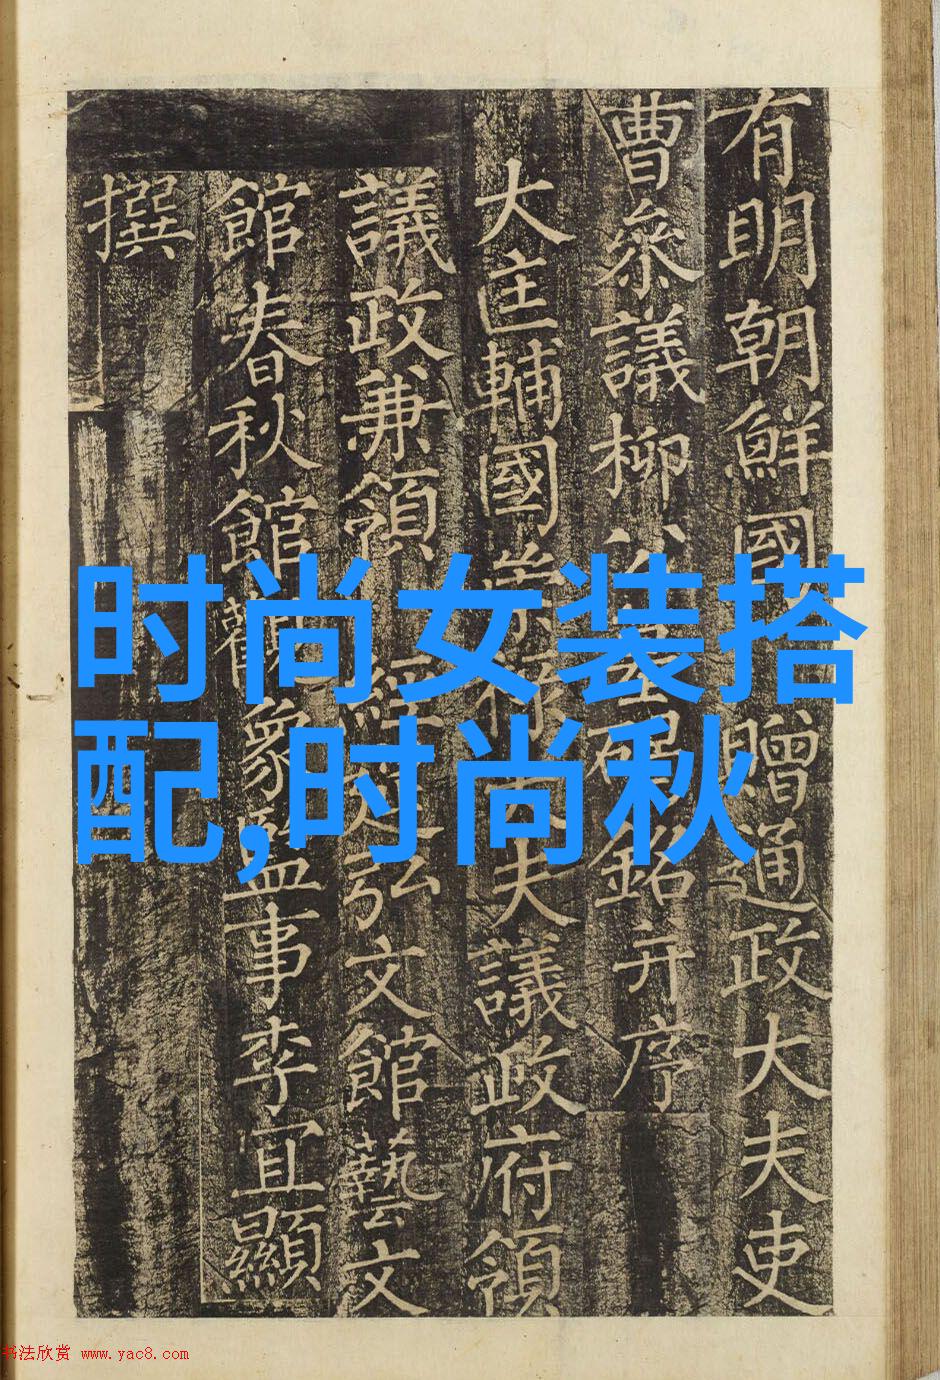 有明朝鮮國贈通政大夫吏
曹叅議柳公墓碣銘并序
大匡輔國崇祿大夫議政府領
議政兼領經筵弘文館藝文
館春秋館觀象監事李宜顯
撰
时尚女装搭
配,时尚秋
书法欣赏 www.yac8.com